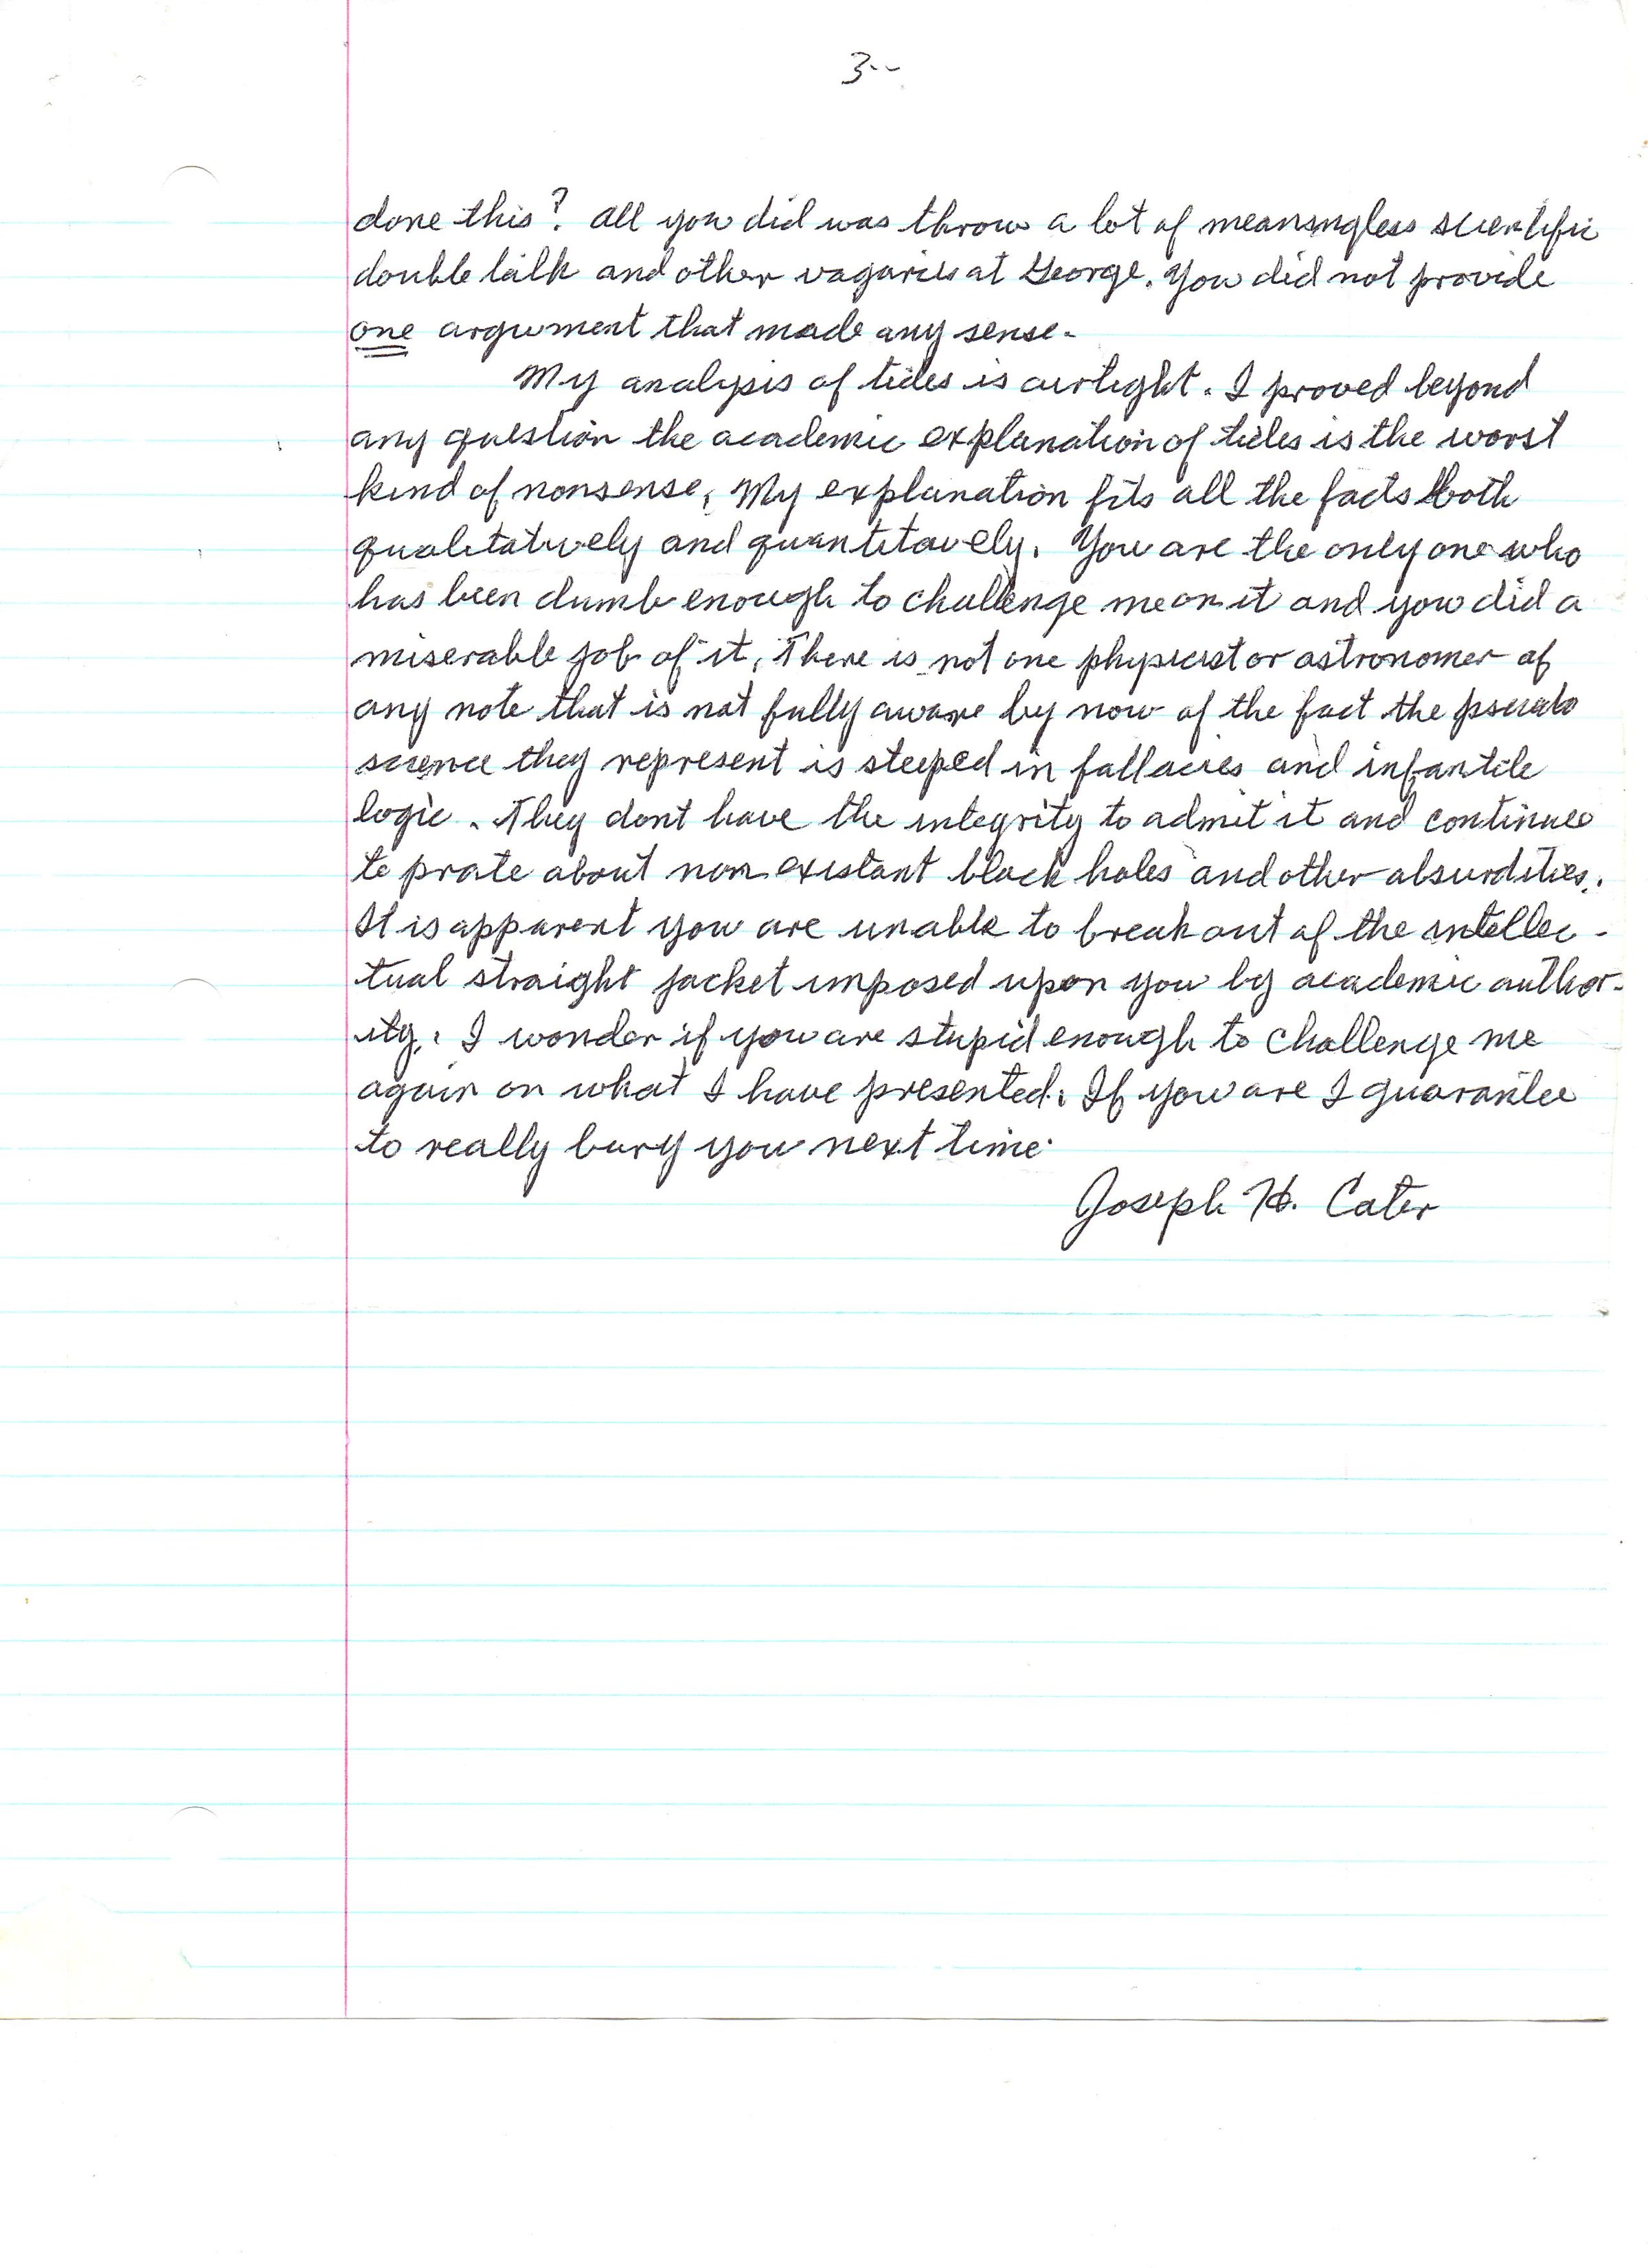 3--
done this? All you did was throw a lot of meaningless scientific
double talk and other vagaries at George. You did not provide
one argument that made any sense.
My analysis of tides is airtight. I proved beyond
any question the academic explanation of tides is the worst
kind of nonsense. My explanation fits all the facts both
qualitatively and quantitavely. You are the only one who
has been dumb enough to challenge me on it and you did a
miserable job of it. There is not one physicist or astronomer of
any note that is not fully aware by now of the fact the pseudo
science they represent is steeped in fallacies and infantile
logic. They dont have the integrity to admit it and continue
to prate about non existant black holes and other absurdities.
It is apparent you are unable to break out of the intellec-
tual straight jacket imposed upon you by academic author-
ity. I wonder if you are stupid enough to challenge me
again on what I have presented. If you are I guarantee
to really bury you next time.
Joseph H. Cater